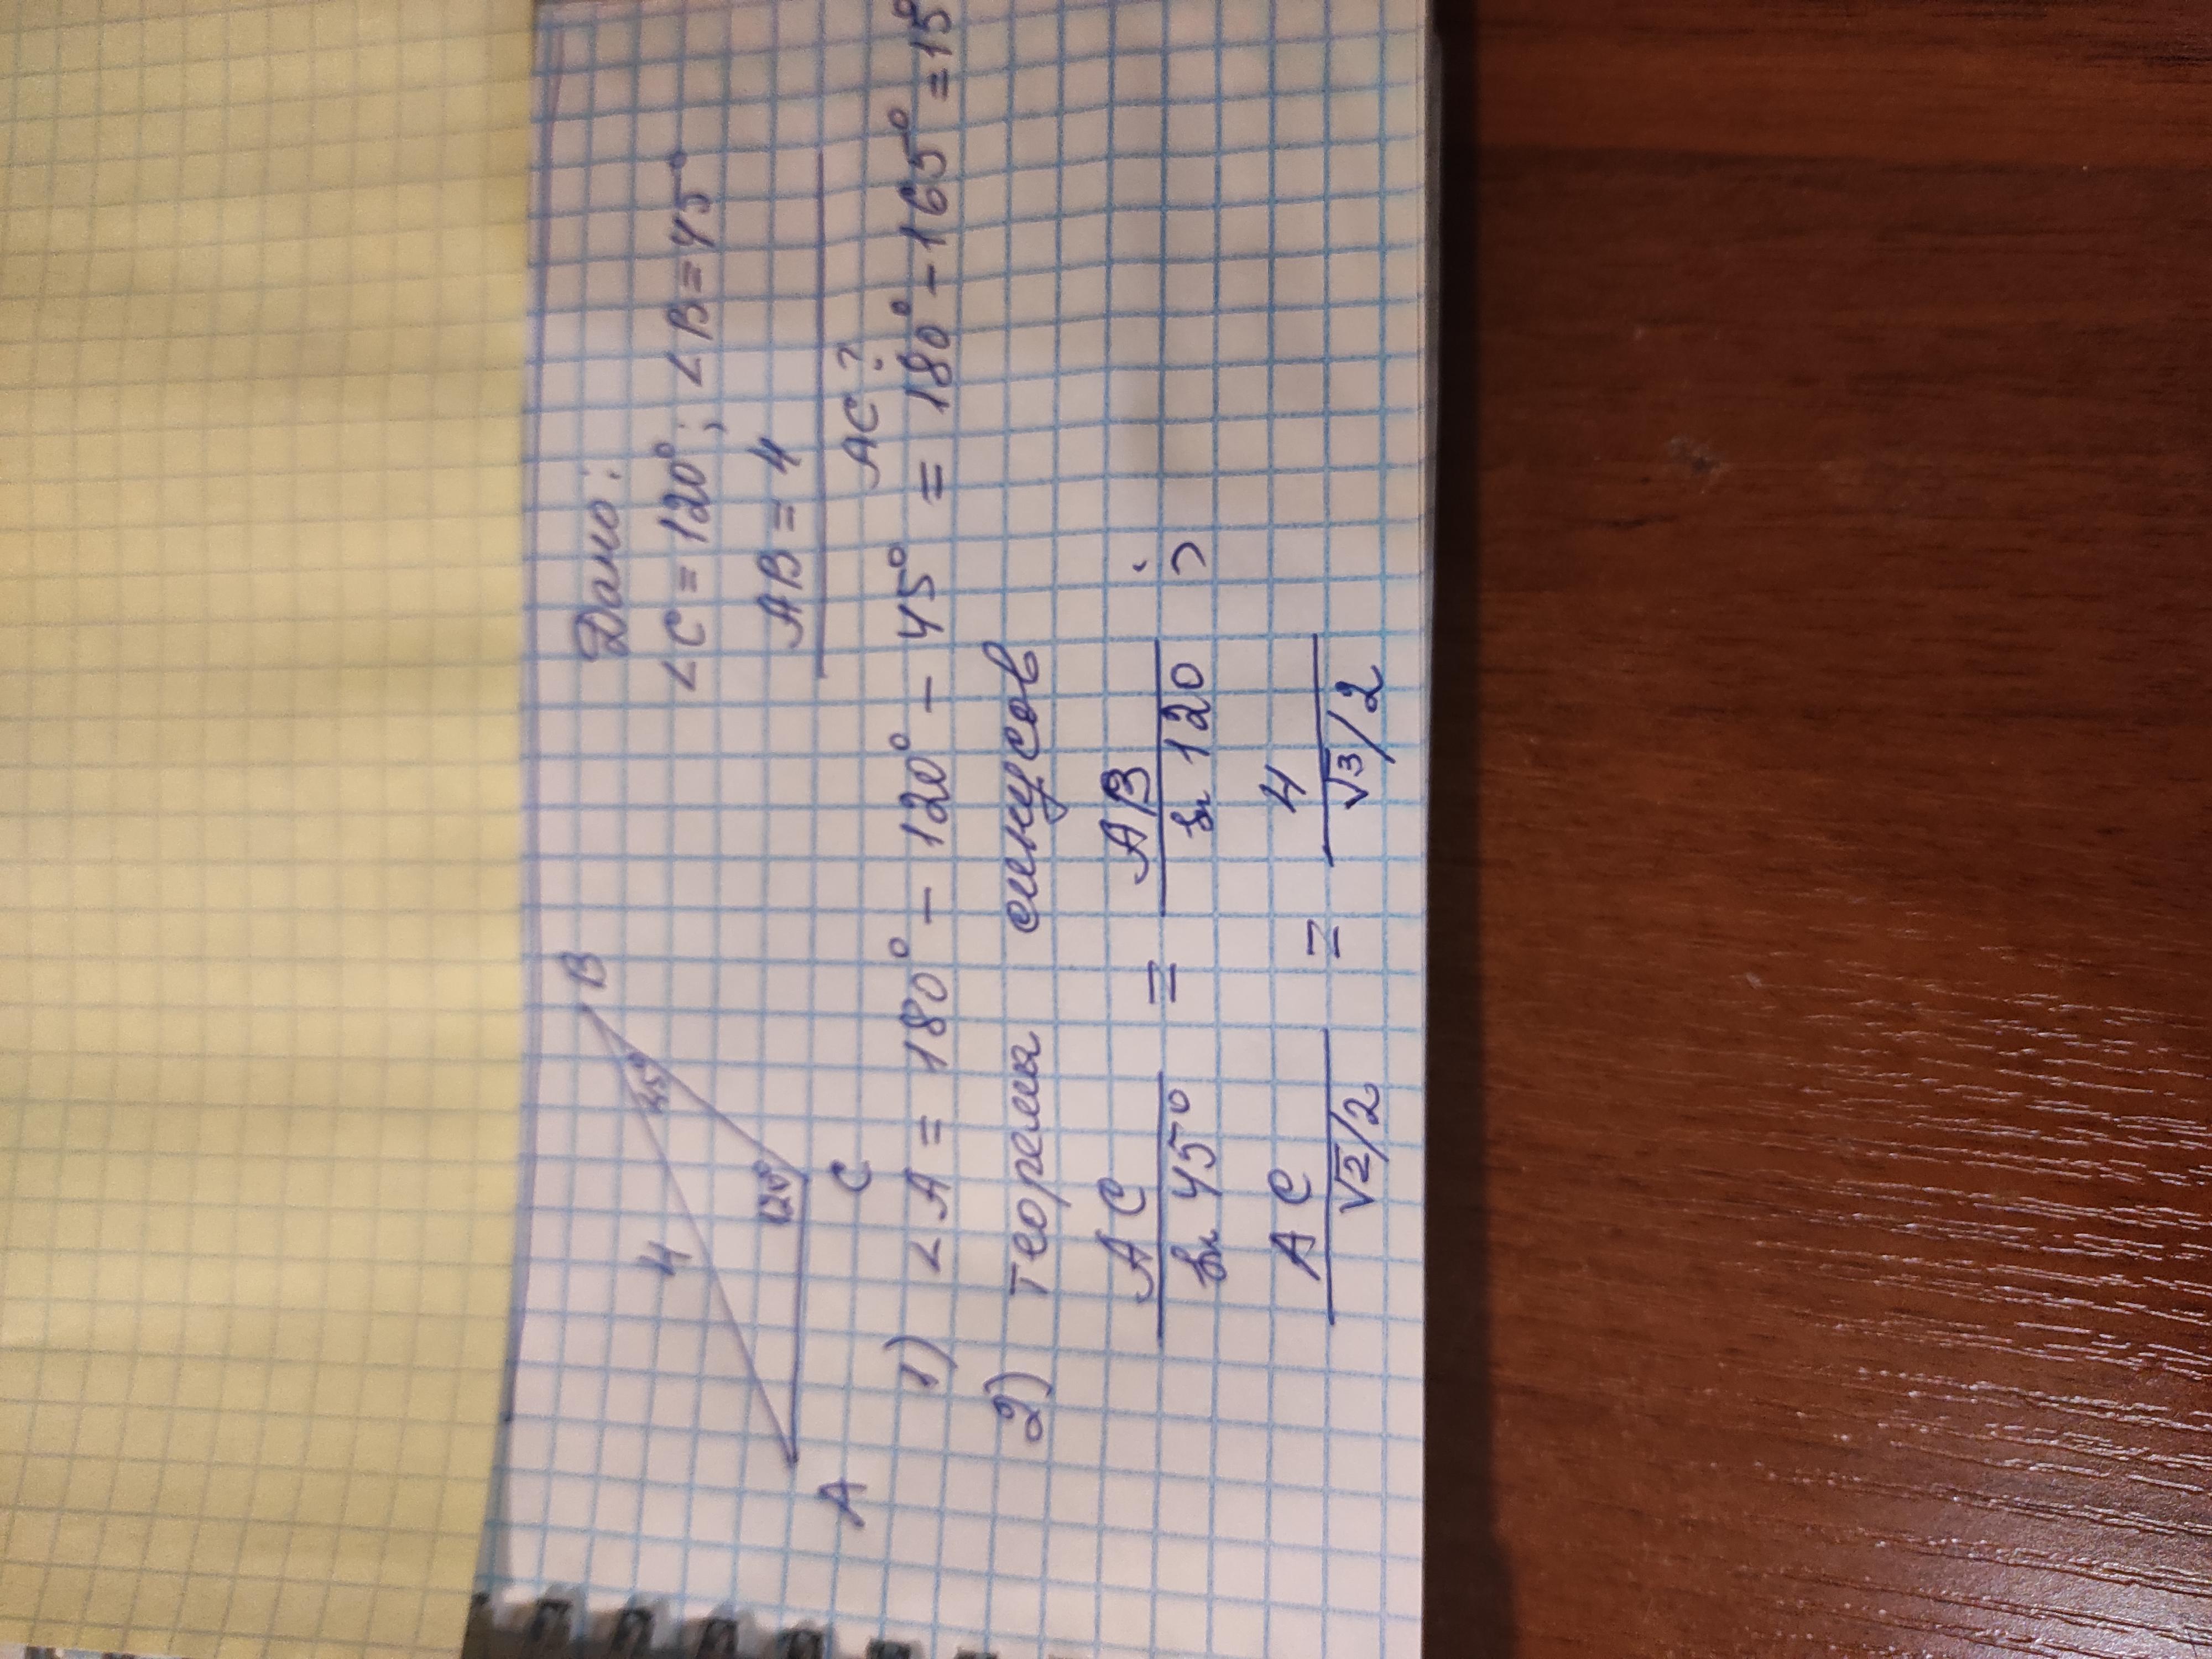 B
45°
4
120°
A
C
Дано:
<C = 120°; <B = 45°
AB = 4
AC?
1) <A = 180° - 120° - 45° = 180° - 165° = 15°
2) теорема синусов
AC / sin 45° = AB / sin 120 ;
AC / √2/2 = 4 / √3/2